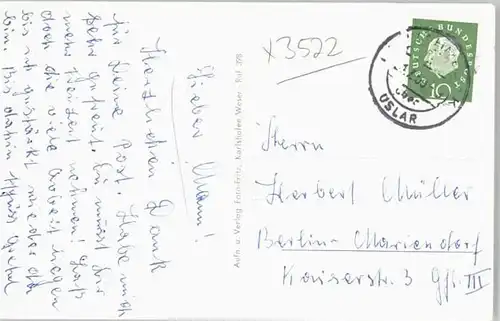 x3522
Lieber Mann!
Herzlichen Dank
für Deine Post. Habe mich
sehr gefreut. Du musst Dir
mehr Freizeit nehmen! Lass
doch die viele Arbeit liegen
bis ich gestärkt wieder da
bin. Bis dahin
Aufn. u. Verlag Foto-Fritz, Karlshafen Weser Ruf 378
DEUTSCHE BUNDESPOST
10
USLAR
Herrn
Herbert Müller
Berlin-Mariendorf
Kaiserstr. 3 Gfl. III